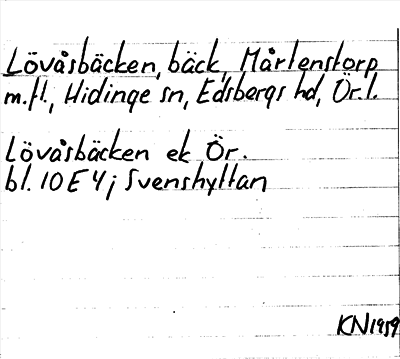 Lövåsbäcken, bäck, Mårtenstorp
m.fl., Hidinge sn, Edsbergs hd, Ör.l.
Lövåsbäcken ek Ör.
bl. 10 E 4 j Svenshyttan
KN 1959